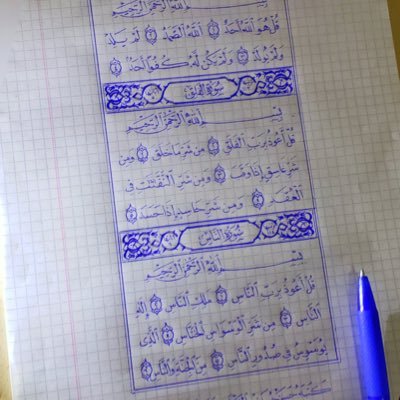 بسم الله الرحمن الرحيم
قُلْ هُوَ اللَّهُ أَحَدٌ ١ اللَّهُ الصَّمَدُ ٢ لَمْ يَلِدْ
وَلَمْ يُولَدْ ٣ وَلَمْ يَكُن لَّهُ كُفُوًا أَحَدٌ ٤
سُورَةُ الْفَلَقِ
بِسْمِ اللَّهِ الرَّحْمَٰنِ الرَّحِيمِ
قُلْ أَعُوذُ بِرَبِّ الْفَلَقِ ١ مِن شَرِّ مَا خَلَقَ ٢ وَمِن
شَرِّ غَاسِقٍ إِذَا وَقَبَ ٣ وَمِن شَرِّ النَّفَّاثَاتِ فِي
الْعُقَدِ ٤ وَمِن شَرِّ حَاسِدٍ إِذَا حَسَدَ ٥
سُورَةُ النَّاسِ
بِسْمِ اللَّهِ الرَّحْمَٰنِ الرَّحِيمِ
قُلْ أَعُوذُ بِرَبِّ النَّاسِ ١ مَلِكِ النَّاسِ ٢ إِلَٰهِ
النَّاسِ ٣ مِن شَرِّ الْوَسْوَاسِ الْخَنَّاسِ ٤ الَّذِي
يُوَسْوِسُ فِي صُدُورِ النَّاسِ ٥ مِنَ الْجِنَّةِ وَالنَّاسِ ٦